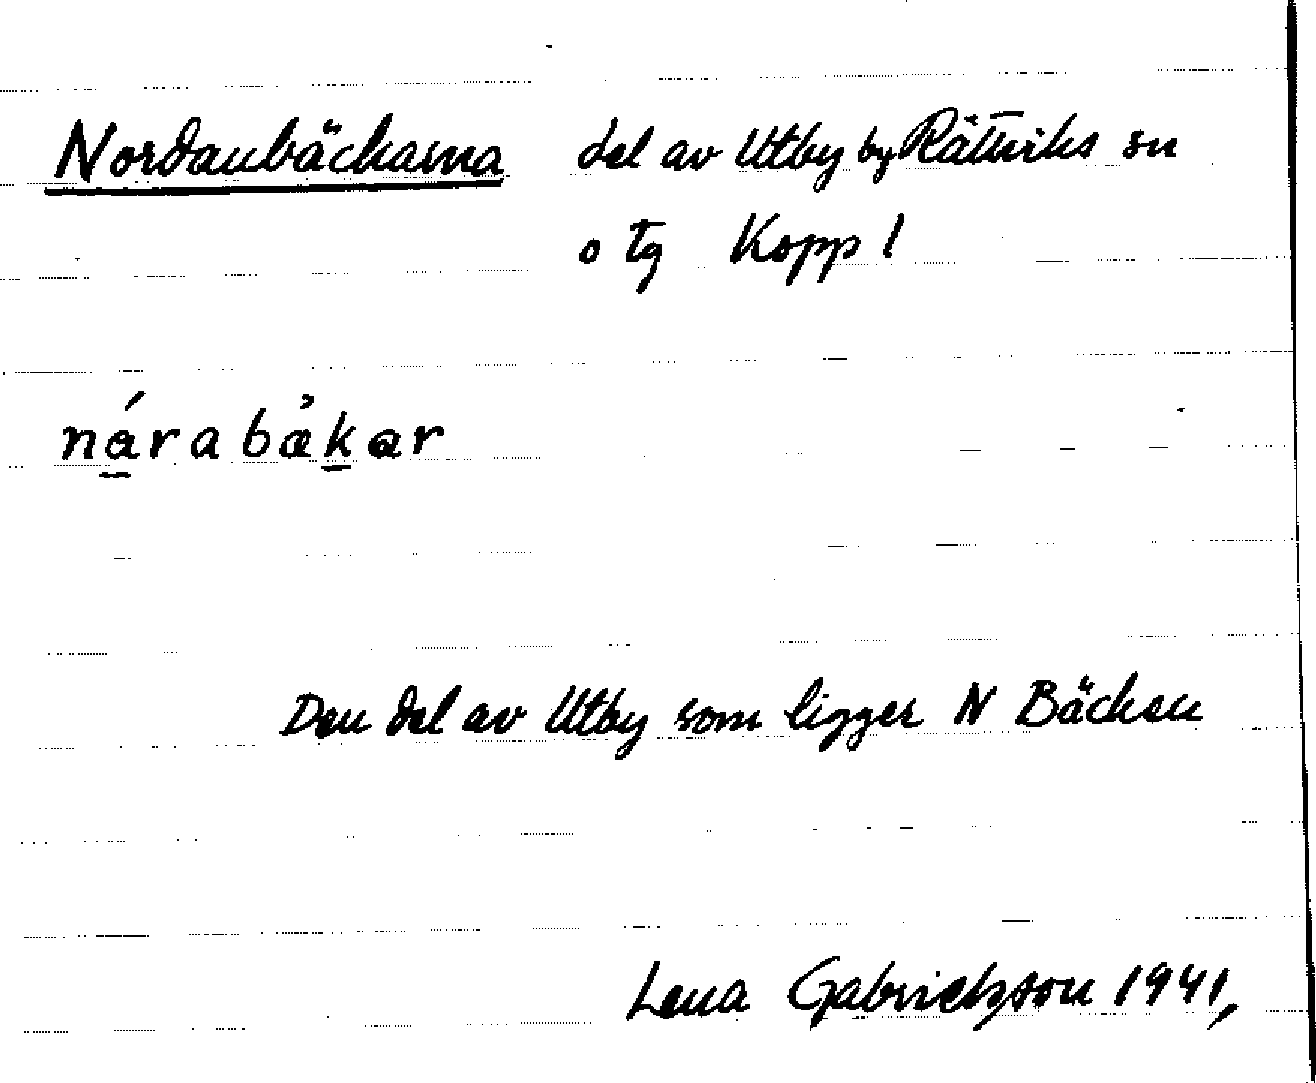 Nordanbäckarna del av Utby by Rättviks sn
o tg Kopp l
nárabækar
Den del av Utby som ligger N Bäcken
Lena Gabrielsson 1941,